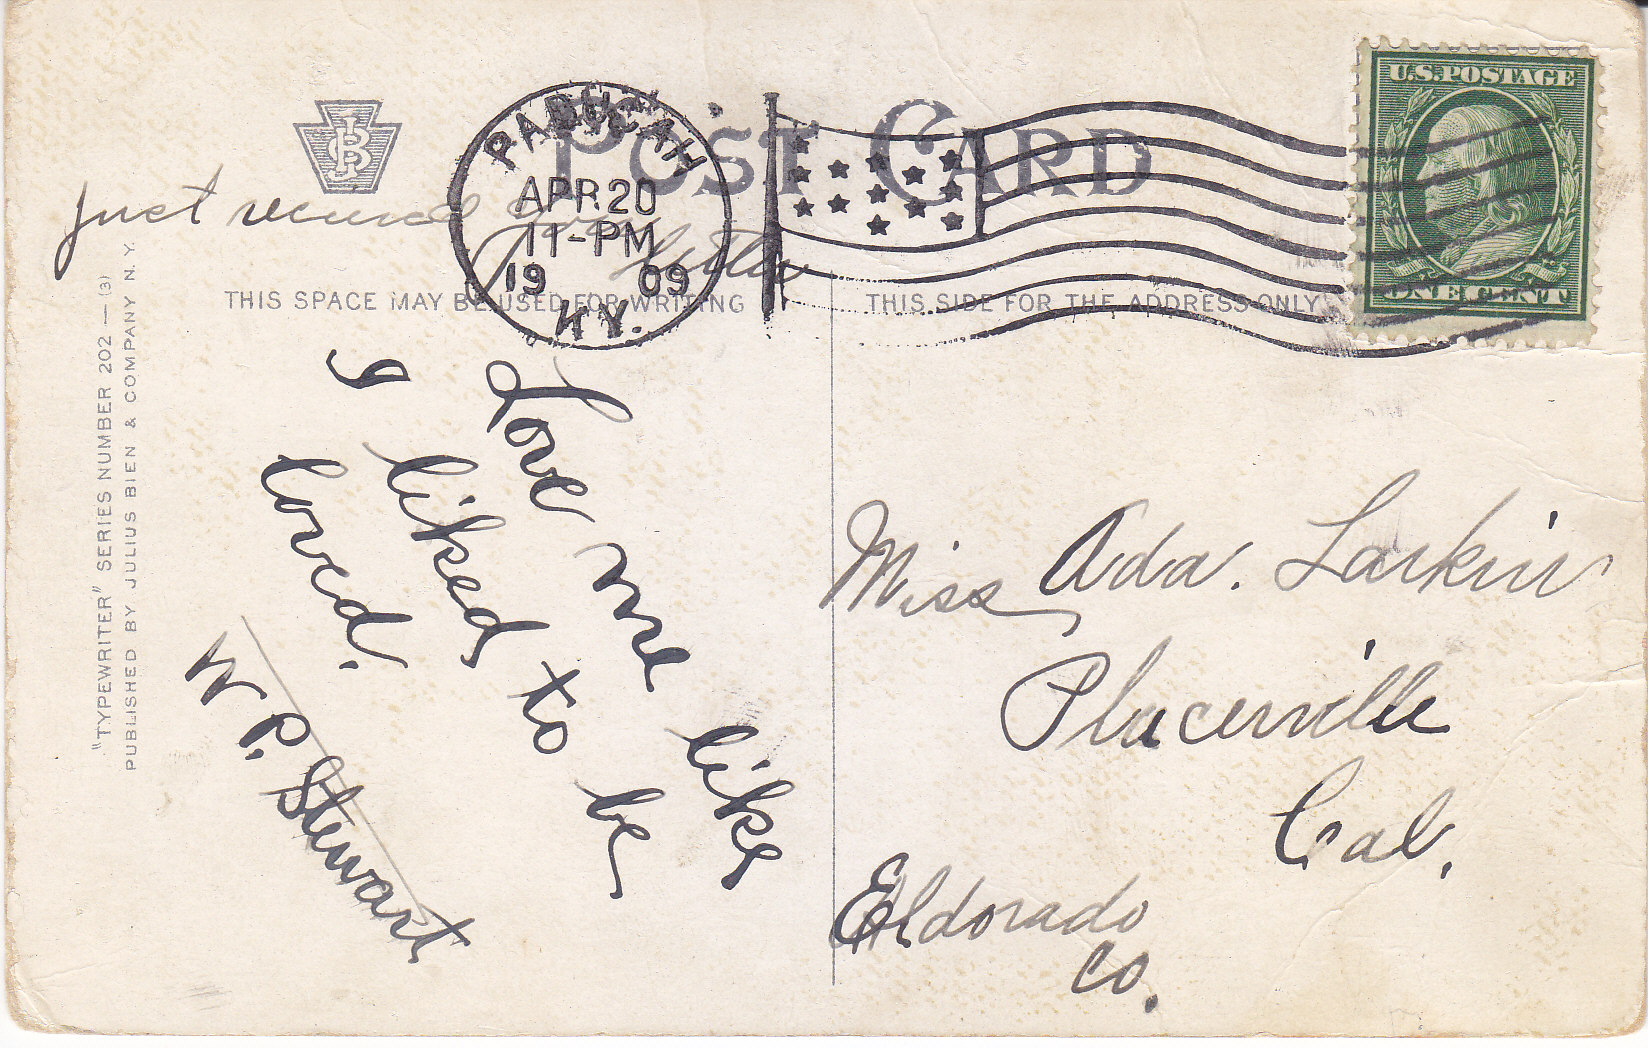 POST CARD
JBC
PADUCAH
APR 20
11-PM
1909
KY.
U.S. POSTAGE
ONE CENT
just received your letter
THIS SPACE MAY BE USED FOR WRITING
THIS SIDE FOR THE ADDRESS ONLY
Love me like
I liked to be
loved.
W P. Stewart
Miss Ada. Larkin
Placerville
Cal.
Eldorado
Co.
"TYPEWRITER" SERIES NUMBER 202 — (3)
PUBLISHED BY JULIUS BIEN & COMPANY N.Y.